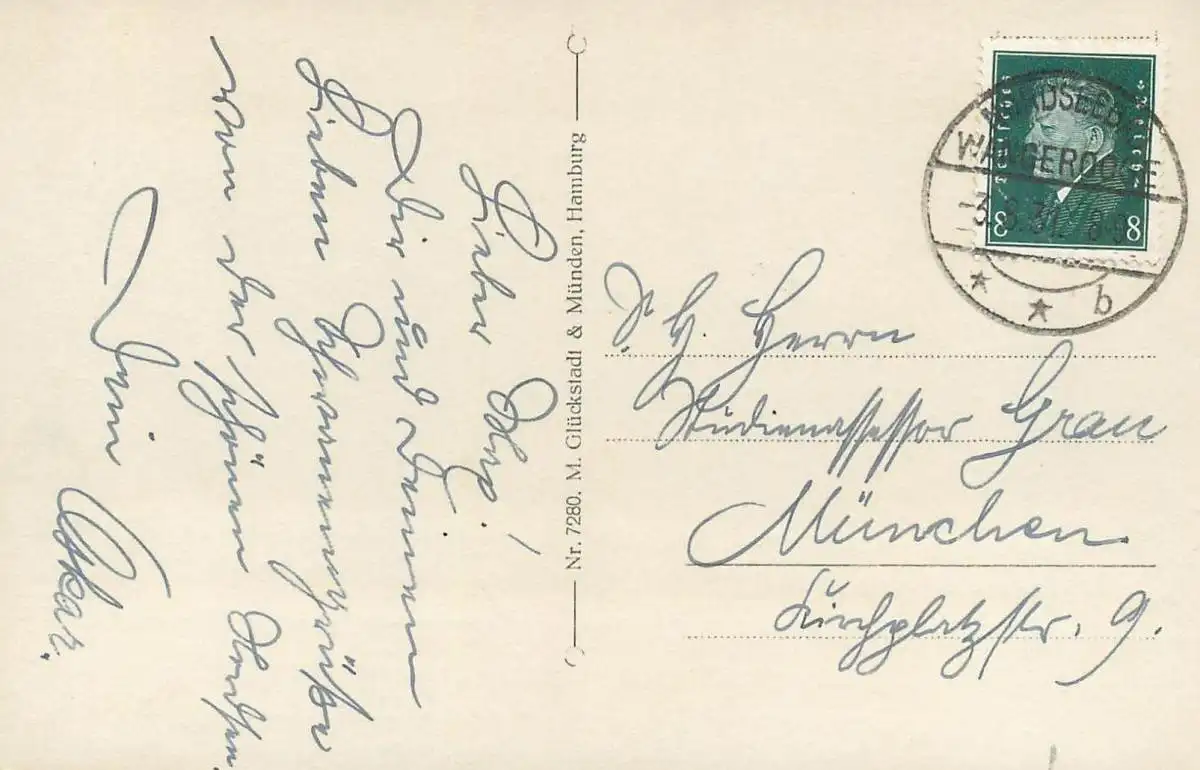 Lieber Sepp!
Dir und Deinen
Lieben Fernengrüße
von der schönen Nordsee.
Dein Oskar.
Nr. 7280. M. Glückstadt & Münden, Hamburg
Deutsches Reich
8 8
NORDSEEB
WANGEROOGE
31. 8-9
b
S. H. Herrn
Studienassessor Grau
München.
Kirchplatzstr. 9.